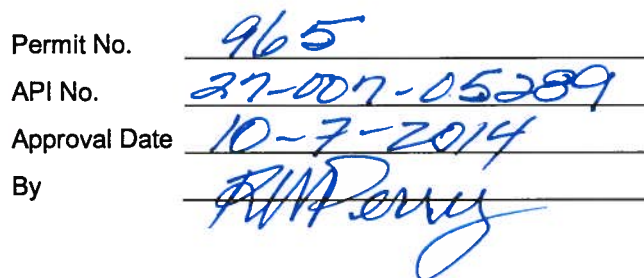 Permit No. 965
API No. 27-007-05289
Approval Date 10-7-2014
By RMPerry